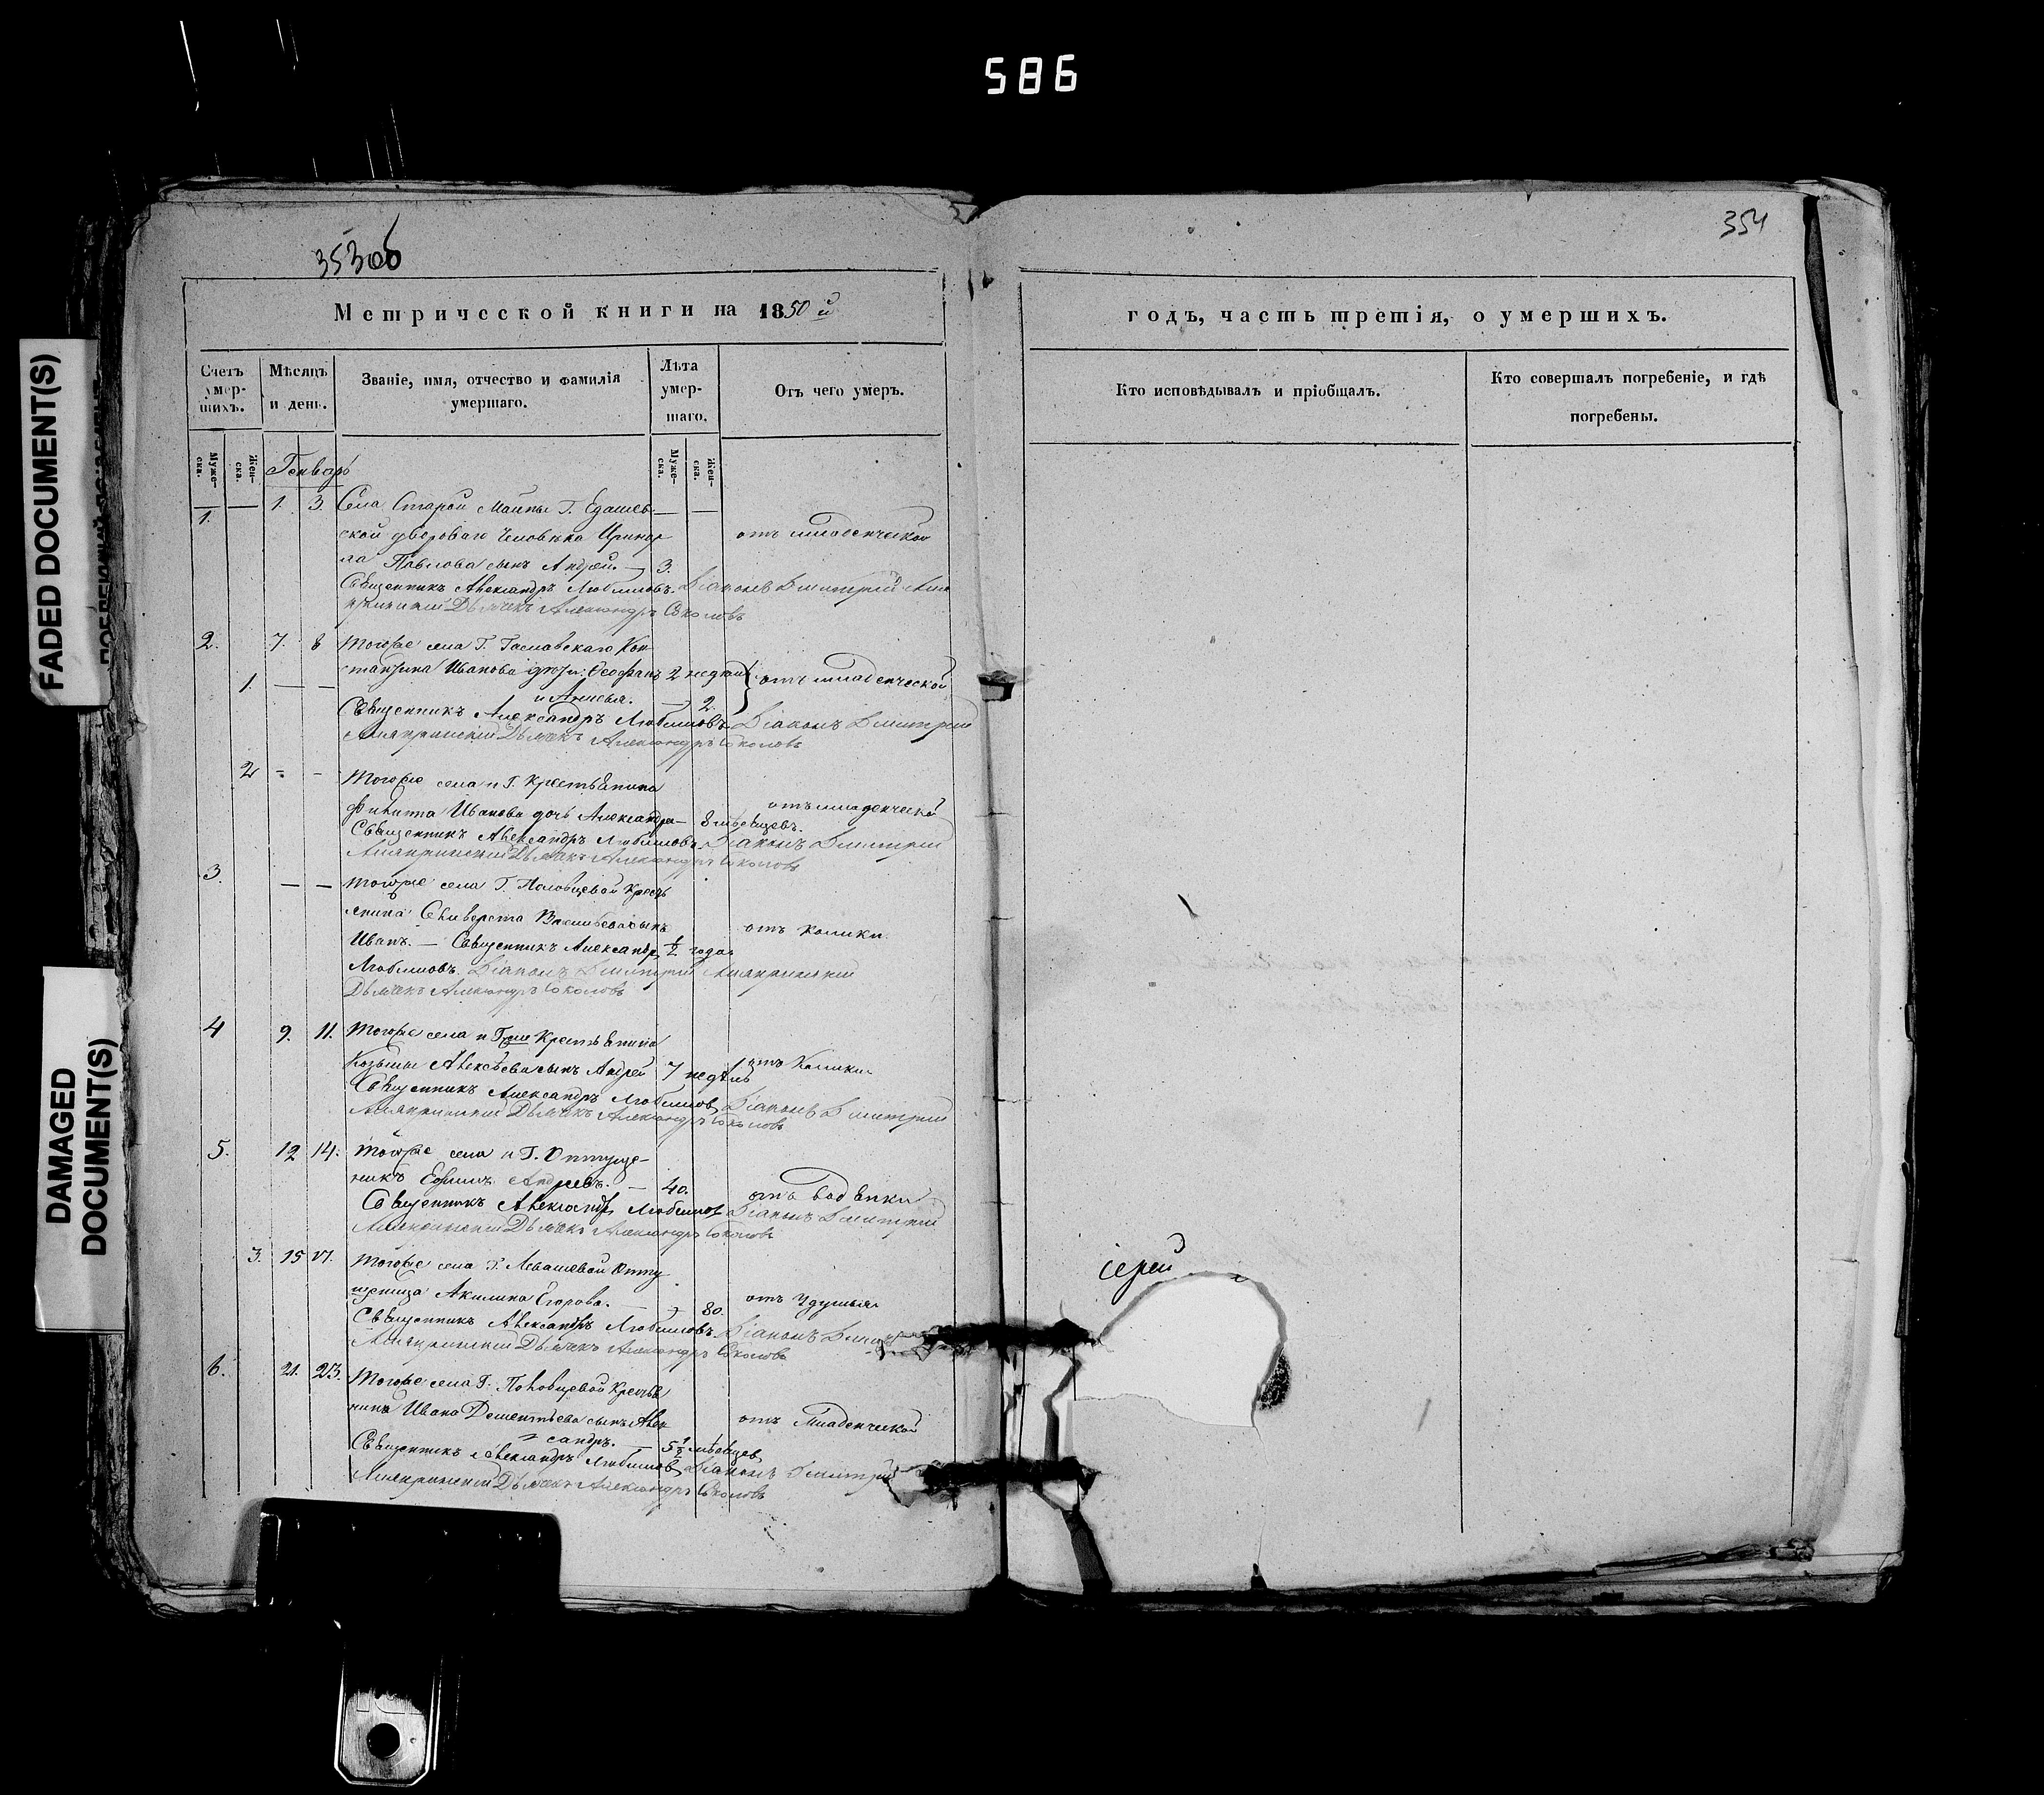 586
FADED DOCUMENT(S)
DAMAGED
DOCUMENT(S)
353об
354
Метрической книги на 1850 й
годъ, часть третія, о умершихъ.
Счетъ умер-шихъ.
Мѣсяцъ и день.
Званіе, имя, отчество и фамилія умершаго.
Лѣта умер-шаго.
Отъ чего умеръ.
Кто исповѣдывалъ и пріобщалъ.
Кто совершалъ погребеніе, и гдѣ погребены.
Муже-ска.
Жен-ска.
Муже-ска.
Жен-ска.
Генварь
1. 1. 3. Села Старой Маины Г.
двороваго человѣка отъ младенческой
Павлова сынъ Андрей. — 3.
Священникъ Александръ Любимовъ. Діаконъ Дмитрій
Дьячекъ Александръ Соколовъ
2. 7. 8 Тогоже села Г. Кон-
стантина Иванова дѣти: Ѳеофанъ 2 недѣли отъ младенческой
1. — — и Анисья. — 2.
Священникъ Александръ Любимовъ Діаконъ Дмитрій
Дьячекъ Александръ Соколовъ
2 = - Тогоже села и Г. Крестьянина
Иванова дочь Александра — 8 мѣсяцевъ. отъ младенческой
Священникъ Александръ Любимовъ. Діаконъ Дмитрій
Дьячекъ Александръ Соколовъ
3. — — Тогоже села Г. Половцевой Кресть
янина Селиверста Васильева сынъ
Иванъ. — Священникъ Александръ ½ года отъ колики
Любимовъ. Діаконъ Дмитрій
Дьячекъ Александръ Соколовъ
4 9. 11. Тогоже села и Г-жи Крестьянина
Козьмы Алексѣева сынъ Андрей 7 недѣль отъ Колики
Священникъ Александръ Любимовъ Діаконъ Дмитрій
Дьячекъ Александръ Соколовъ
5. 12 14. Тогоже села и Г. Отпуще-
никъ Ефимъ Андреевъ. — 40. отъ водянки
Священникъ Александръ Любимовъ Діаконъ Дмитрій
Дьячекъ Александръ Соколовъ
3. 15 17. Тогоже села Г. Левашевой Отпу
щеница Акилина Егорова. — 80. отъ удушья
Священникъ Александръ Любимовъ. Діаконъ
Дьячекъ Александръ Соколовъ
6. 21. 23. Тогоже села Г. Половцевой Крестья
нина Ивана Дементьева сынъ Алек
сандръ. — 5½ мѣсяцев отъ младенческой
Священникъ Александръ Любимовъ Діаконъ Дмитрій
Дьячекъ Александръ Соколовъ
іерей